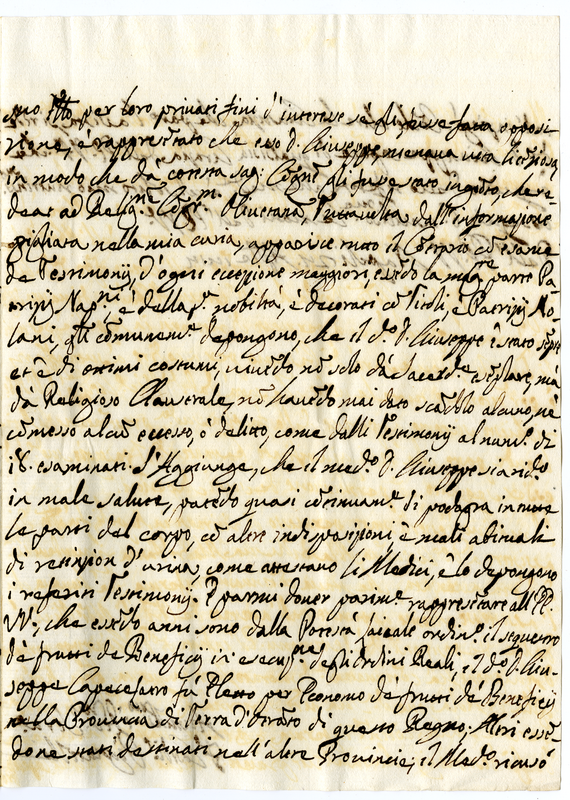 per loro privati fini d'interesse
rione, è rappresẽtato che esso D. Giuseppe menava vita licẽziosa
in modo che da cotesta sag: Cogñe gli fusse stato ingiõto, che re
deat ad Relig.ne Cõgr.m Olivetana, Tuttavolta dall'informazione
pigliata nella mia curia, apparisce tutto il Cõtrario cõ esame
de Testimonij, d'ogni eccezzione maggiori, essẽdo la mag.re parte Pa
trizij Nap.ni, è della p.a nobiltà, è decorati cõ Titoli, è Patrizij No
lani, quali comunem.e depongono, che il d.o D. Giuseppe è stato sẽpre
et è di ottimi costumi, vivẽdo nõ solo dà Sacerd.e esẽplare, mà
dà Religioso Claustrale, nõ havẽdo mai dato scãdolo alcuno, nè
cõmesso alcũ eccesso, ò delitto, come dalli Testimonij al num.o di
18. esaminati. S'Aggiunge, che il med.o D. Giuseppe sia rid.o
in male salute, patẽdo quasi cõtinuam.e di podagra in tutte
le parti del corpo, cõ altre indisposizioni è mali abituali
di retẽzion d'urina, come attestano li Medici, è lo depongono
i referiti Testimonij. E parmi dover parim.e rappresẽtare all'EE.
VV., che essẽdo anni sono dalla Potestà laicale ordin.o il sequestro
dè frutti de Beneficij in esecuz.ne degli Ordini Reali, il d.o D. Giu-
seppe Capecelatro fù Eletto per Economo dè frutti dè Beneficij
nella Provincia di Terra d'Otranto di questo Regno; Altri essẽ-
done stati destinati nell'altre Provincie; il Med.o ricusò